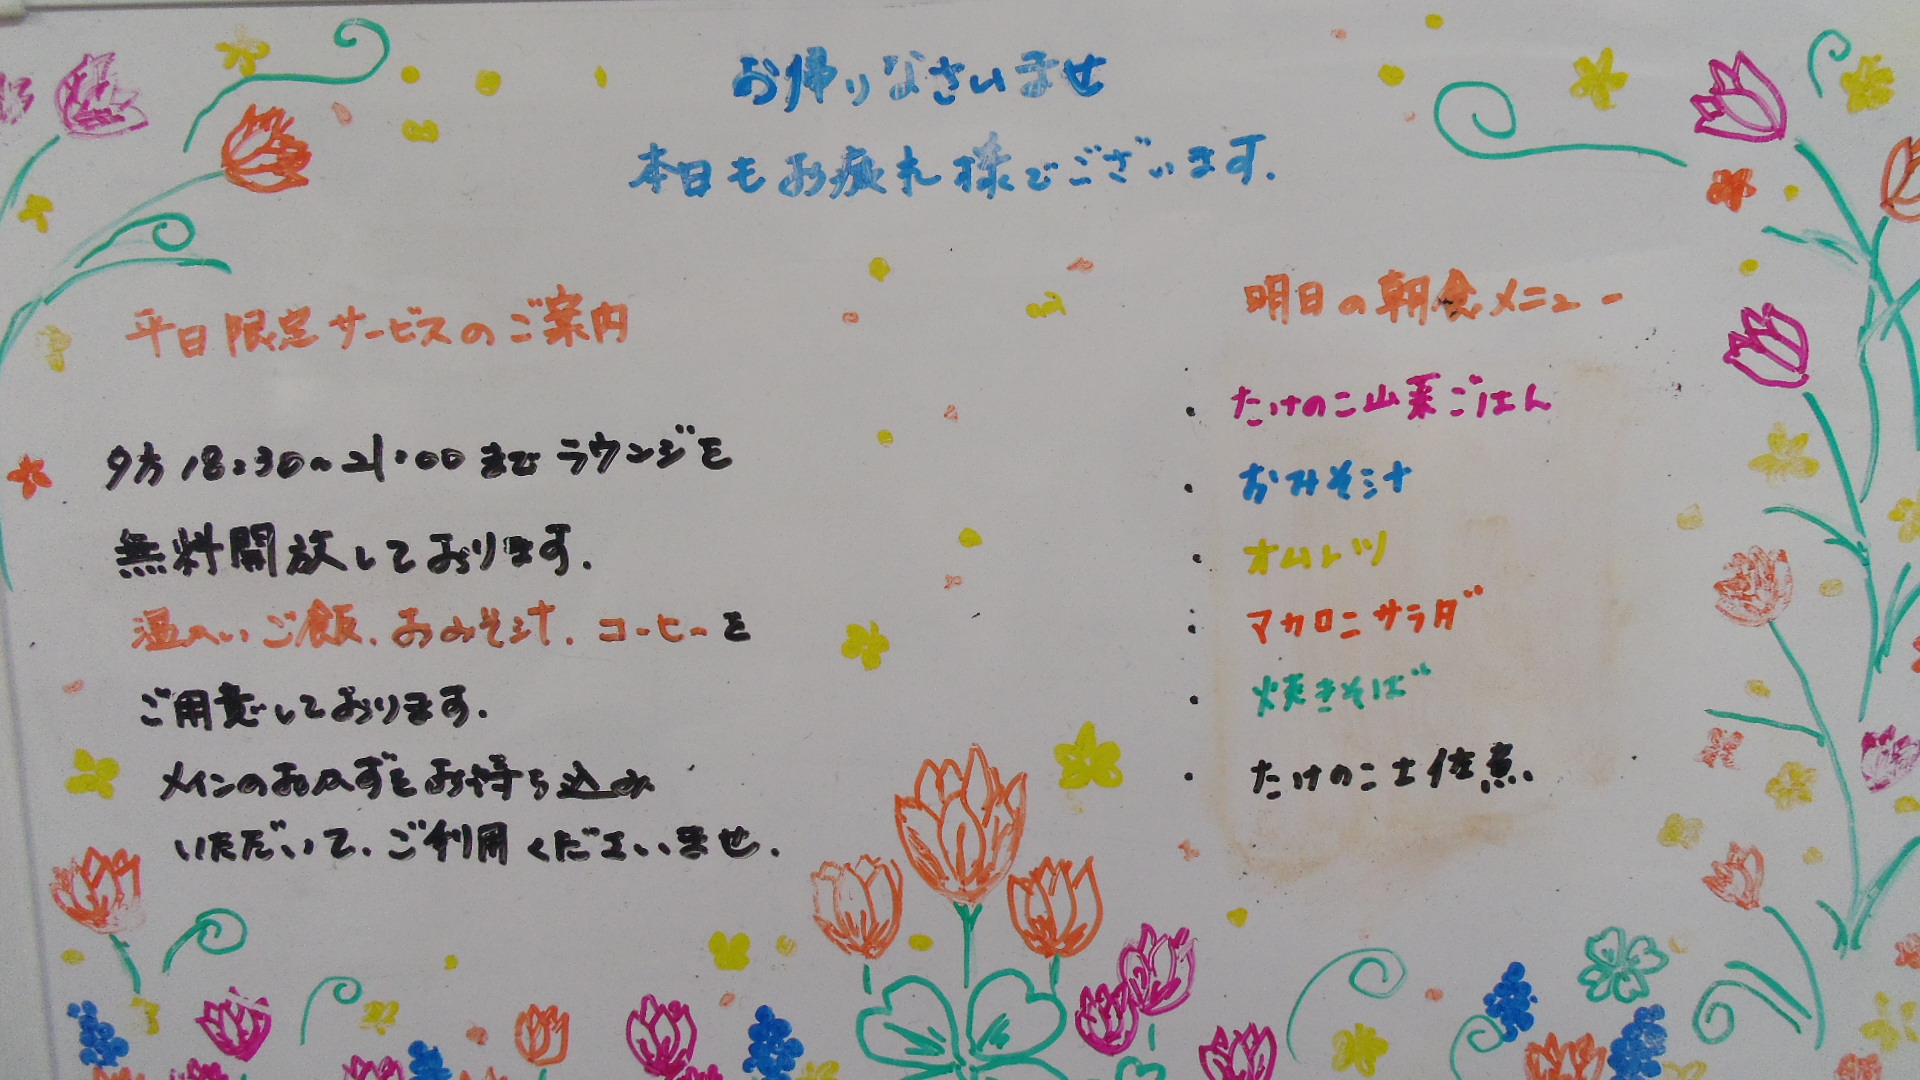 お帰りなさいませ
本日もお疲れ様でございます.
平日限定サービスのご案内
夕方18:30~21:00までラウンジを
無料開放しております.
温かいご飯、おみそ汁、コーヒーを
ご用意しております.
メインのおかずをお持ち込み
いただいて、ご利用くださいませ.
明日の朝食メニュー
・たけのこ山菜ごはん
・おみそ汁
・オムレツ
・マカロニサラダ
・焼きそば
・たけのこ土佐煮.